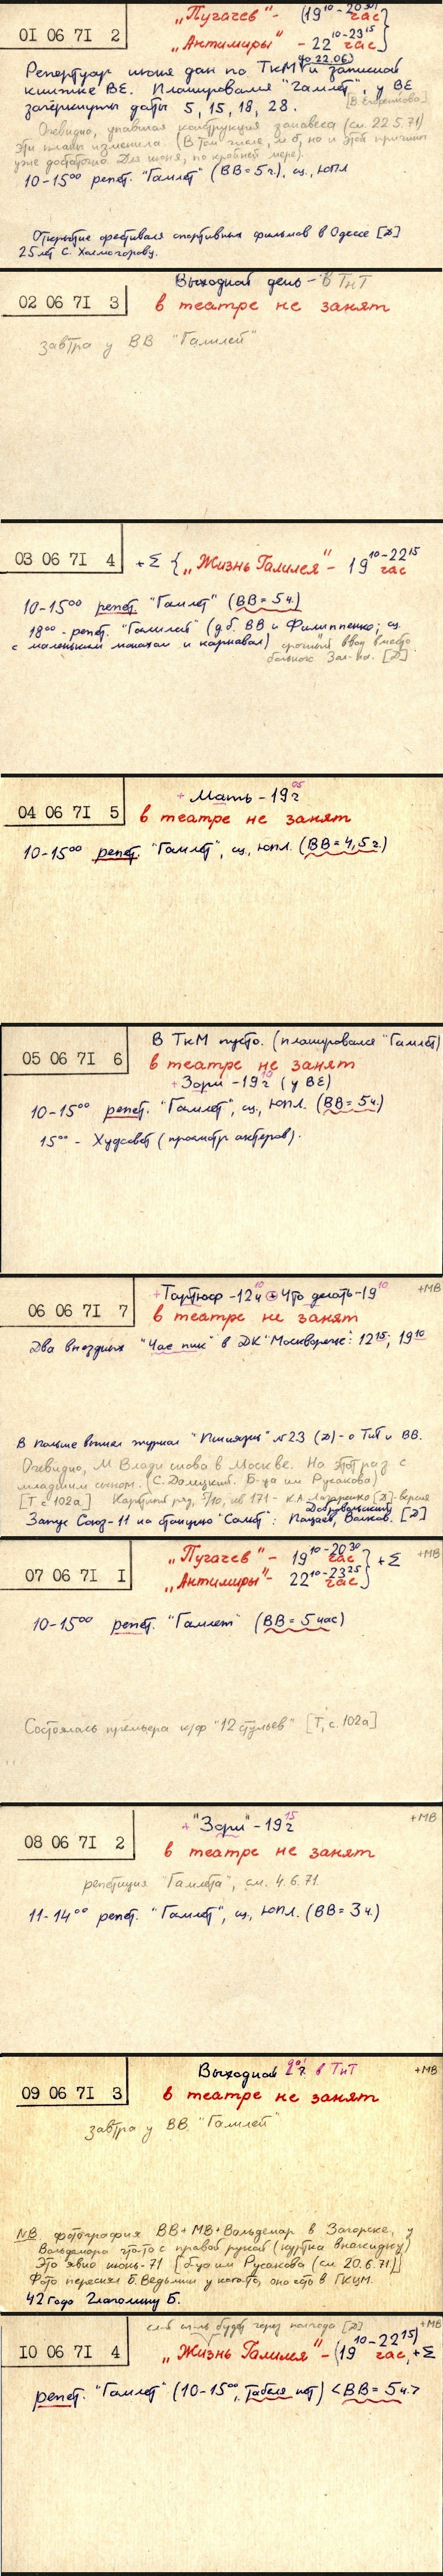 „Пугачев“ - (19¹⁰-20³⁰ час
01 06 71 2
„Антимиры“ - 22¹⁰-23¹⁵ час)
Репертуар июня дан по ТкМ (до 22.06) и записной
книжке ВЕ. Планировался "Гамлет", у ВЕ
зачёркнуты даты 5, 15, 18, 28.
Очевидно, упавшая конструкция занавеса (см. 22.5.71)
эти планы изменила. (В том числе, м.б, но и этой причины
уже достаточно. Для июня, по крайней мере).
10-15⁰⁰ репет. "Гамлет" (ВВ=5ч.), сц., ЮПЛ
Открытие фестиваля спортивных фильмов в Одессе [Д]
25 лет С. Холмогорову.
Выходной день - в ТнТ
02 06 71 3
в театре не занят
завтра у ВВ "Галилей"
03 06 71 4
+Σ { „Жизнь Галилея“ - 19¹⁰-22¹⁵ час
10-15⁰⁰ репет. "Гамлет" (ВВ=5ч.)
18⁰⁰ - репет. "Галилей" (д.б. ВВ и Филиппенко; сц.
с маленьким монахом и карнавал) срочный ввод вместо
больного [Д]
+ Мать - 19⁰⁵ ч
04 06 71 5
в театре не занят
10-15⁰⁰ репет. "Гамлет", сц., ЮПЛ. (ВВ=4,5ч.)
В ТкМ пусто. (планировался "Гамлет)
05 06 71 6
в театре не занят
+ Зори - 19¹⁰ ч (у ВЕ)
10-15⁰⁰ репет. "Гамлет", сц., ЮПЛ. (ВВ=5ч.)
15⁰⁰ - Худсовет (просмотр актеров).
+ Тартюф - 12ч ⊕ Что делать - 19¹⁰ +МВ
06 06 71 7
в театре не занят
Два выездных "Час пик" в ДК "Москворечье: 12¹⁵; 19¹⁰
В Польше вышел журнал № 23 (Д) - о ТнТ и ВВ.
Очевидно, М Влади снова в Москве. На этот раз с
младшим сыном. (С. Долецкий. Б-ца им Русакова)
[Т с.102а] Каретный ряд, 5/10, кв 171 - К.А. Лазаренко [Д]-версия
Добровольский
Запуск Союз-11 на станцию "Салют": Пацаев, Волков. [Д]
„Пугачев“ - 19¹⁰-20³⁰ час } +Σ +МВ
07 06 71 1
„Антимиры“ - 22¹⁰-23²⁵ час
10-15⁰⁰ репет. "Гамлет" (ВВ=5час)
Состоялась премьера к/ф "12 стульев" [Т, с.102а]
+ "Зори" - 19¹⁵ ч +МВ
08 06 71 2
в театре не занят
репетиция "Гамлета", см. 4.6.71.
11-14⁰⁰ репет. "Гамлет", сц., ЮПЛ. (ВВ=3ч.)
Выходной в ТнТ +МВ
09 06 71 3
в театре не занят
завтра у ВВ "Галилей"
NB фотография ВВ+МВ+Вольдемар в Загорске, у
Вольдемара что-то с правой рукой (куртка внакидку)
Это явно июнь-71 [б-ца им Русакова (см. 20.6.71.]
Фото переснял Б. Ведьмин у кого-то, оно есть в ГКЦМ.
42 года Глаголину Б.
будет через полгода [Д] +МВ
10 06 71 4
„Жизнь Галилея“ - (19¹⁰-22¹⁵) час, +Σ
репет. "Гамлет" (10-15⁰⁰, табеля нет) <ВВ=5ч.>